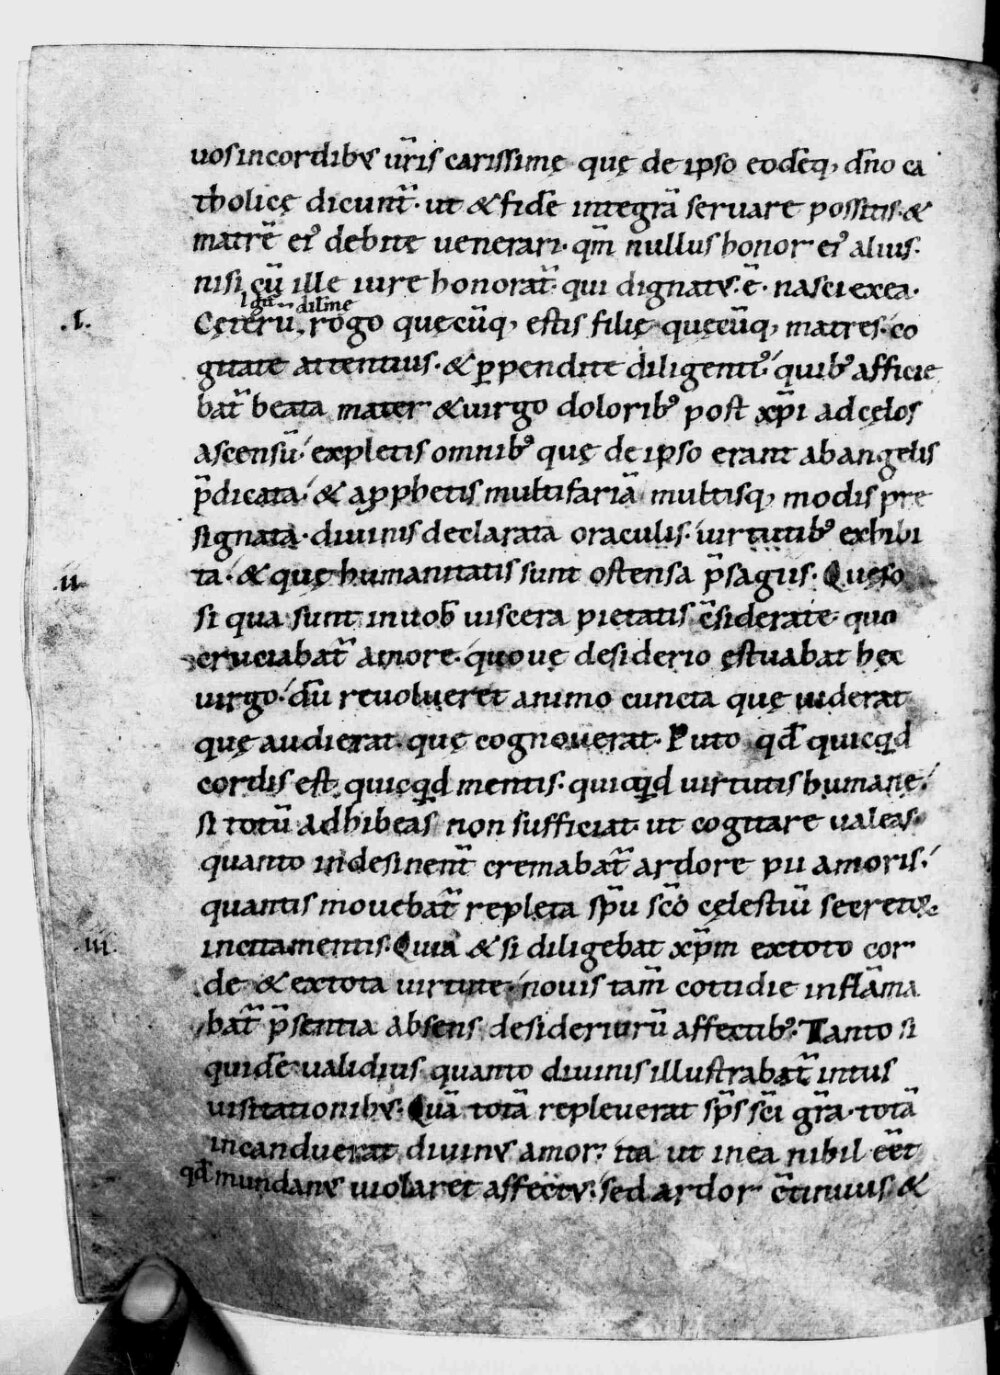 uos incordibꝰ ur̃is carissime que de ipso eodẽq, dño ca
tholice dicunt᷑· ut & fidẽ integrã seruare possitis· &
matrẽ eiꝰ debite uenerari· qm̃ nullus honor eiꝰ alius·
nisi cũ ille iure honorat᷑· qui dignatꝰ ẽ· nasci exea·
.I. Cęterũ, rogo quęcũq, estis filię quęcũq, matres· co
gitate attentius· & ꝑpendite diligent᷑· quibꝰ afficie
bat᷑ beata mater & uirgo doloribꝰ post xp̃i adcęlos
ascensũ· expletis omnibꝰ quę de ipso erant abangelis
p̃dicata· & aꝓphetis multifariã multisq, modis pre
signata· diuinis declarata oraculis· uirtutibꝰ exhibi
.II. ta· & quę humanitatis sunt ostensa p̃sagiis· Quęso
si qua sunt inuob̃ uiscera pietatis c̃siderate· quo
cruciabat᷑ amore· quoue desiderio ęstuabat hęc
uirgo· dũ reuolueret animo cuncta quę uiderat
quę audierat· quę cognouerat· Puto qd̃ quicq̣d
cordis est· quicq̣d mentis· quicq̣d uirtutis humanę·
si totũ adhibeas non sufficiat· ut cogitare ualeas·
quanto indesinent᷑ cremabat᷑ ardore pii amoris·
quantis mouebat᷑ repleta sp̃u sc̃o cęlestiũ secretoꝝ
.III. incitamentis· Quia & si diligebat xp̃m extoto cor
de· & extota uirtute· nouis tam̃ cotidie inflãma
bat᷑ p̃sentia absens desideriorũ affectibꝰ· Tanto si
quidẽ ualidius quanto diuinis illustrabat᷑ intus
uisitationibꝰ· Quã totã repleuerat sp̃s sc̃i gr̃a· totã
incanduerat diuinꝰ amor· ita ut inea nihil eẽt
qd̃ mundanꝰ uiolaret affectꝰ· sed ardor c̃tinuus· &